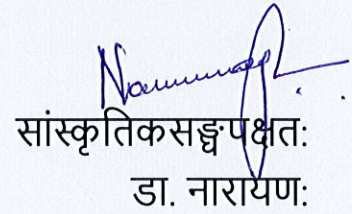 सांस्कृतिकसङ्घपक्षत:
डा. नारायण: